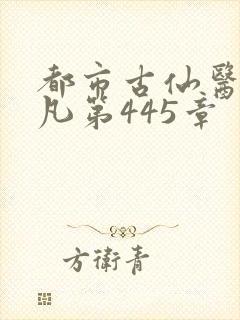 都市古仙醫
凡第445章
方衛青